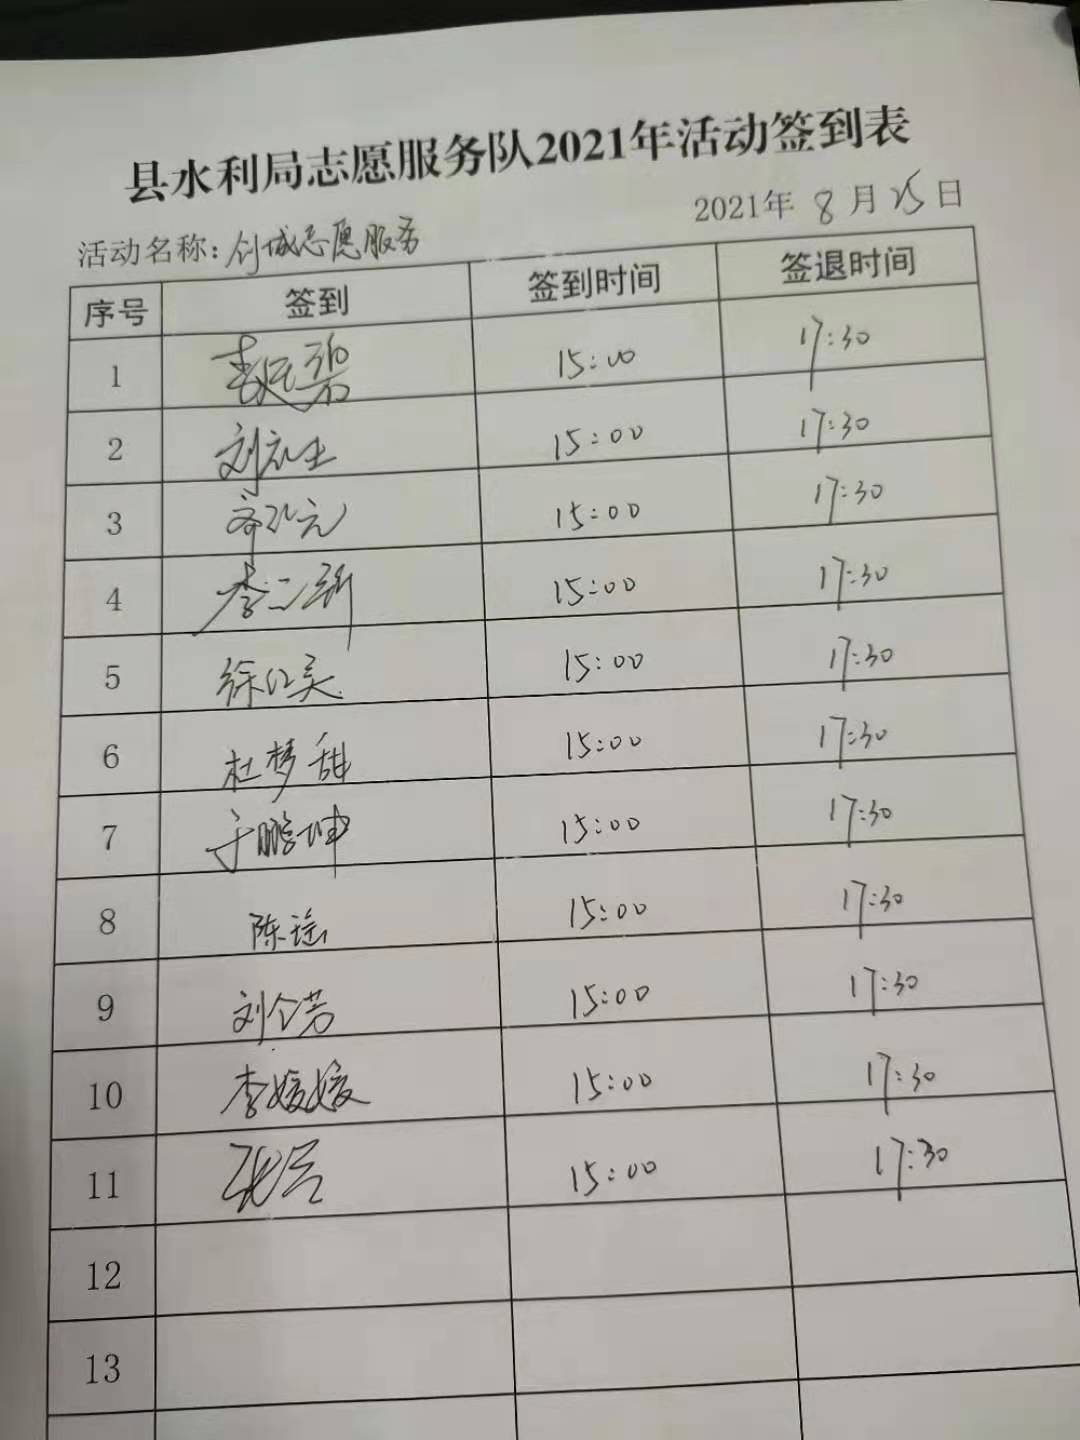 县水利局志愿服务队2021年活动签到表
2021年 8 月 25 日
活动名称: 创城志愿服务
序号 签到 签到时间 签退时间
1 15:00 17:30
2 15:00 17:30
3 15:00 17:30
4 15:00 17:30
5 15:00 17:30
6 杜梦甜 15:00 17:30
7 于鹏坤 15:00 17:30
8 陈瑶 15:00 17:30
9 15:00 17:30
10 李媛媛 15:00 17:30
11 15:00 17:30
12
13